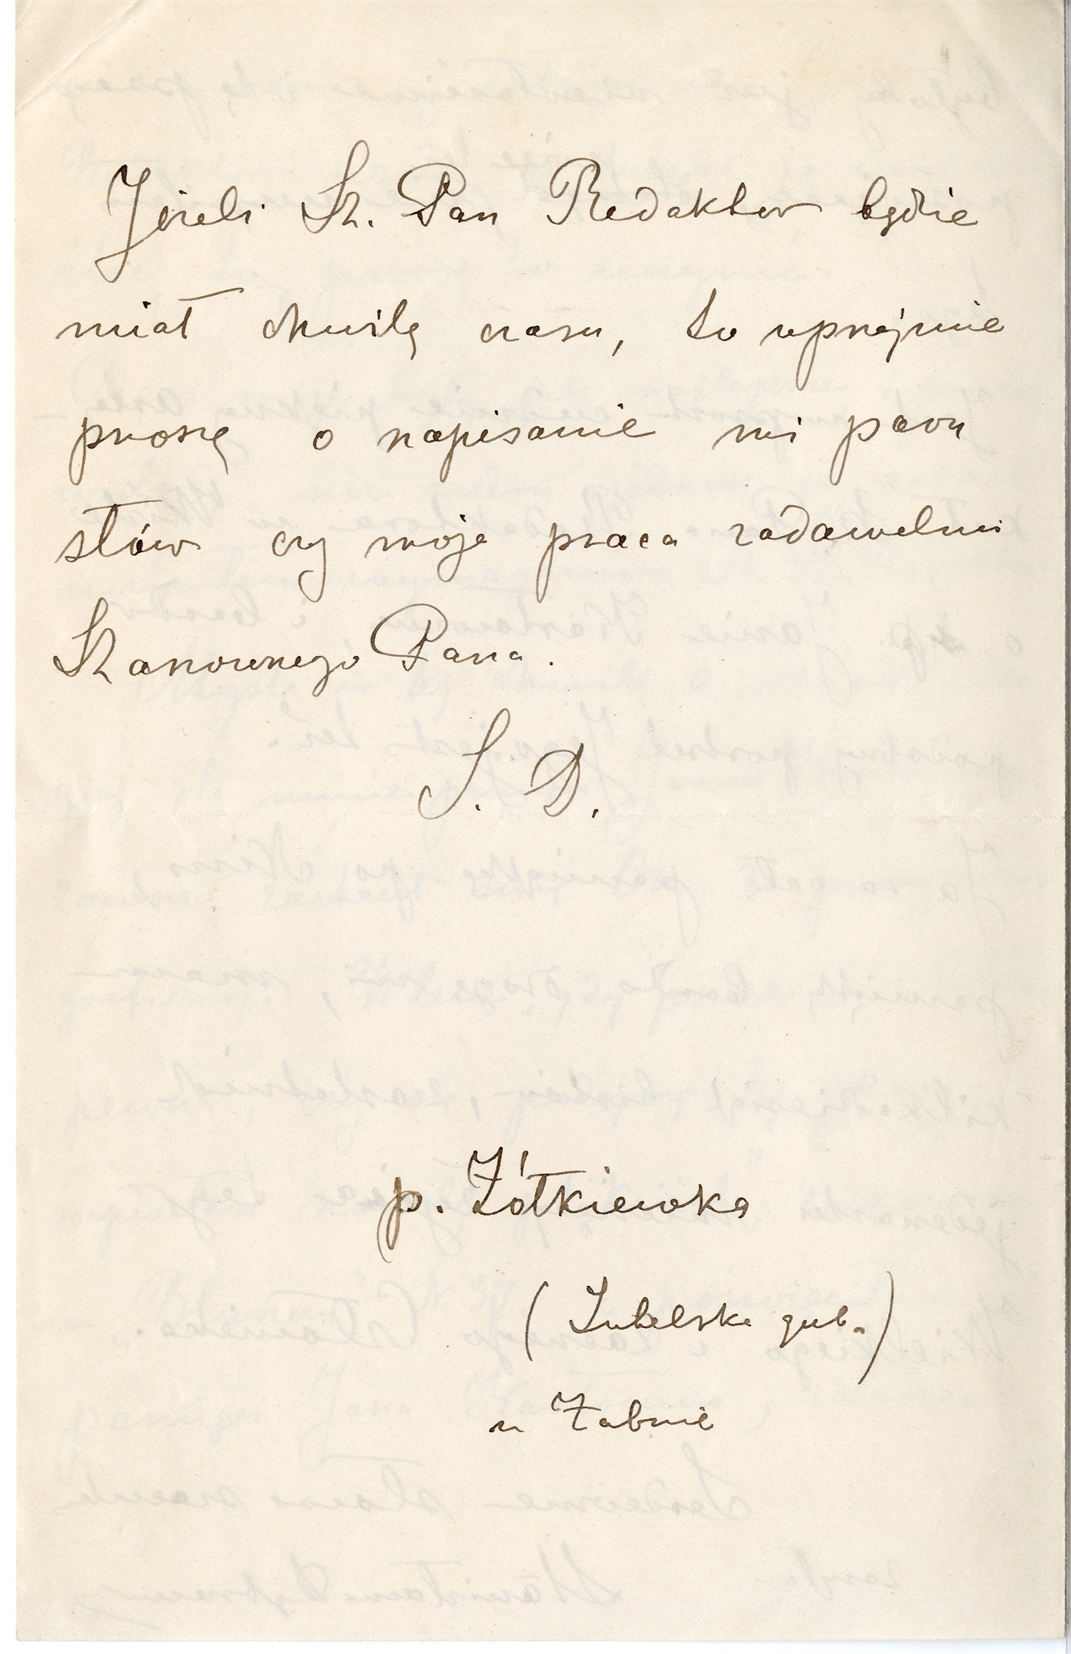 Jeżeli Sz. Pan Redaktor będzie
miał chwilę czasu, to uprzejmie
proszę o napisanie mi paru
słów czy moja praca zadawelni
Szanownego Pana.
S. D.
p. Żółkiewka
(Lubelska gub.)
w Żabnie